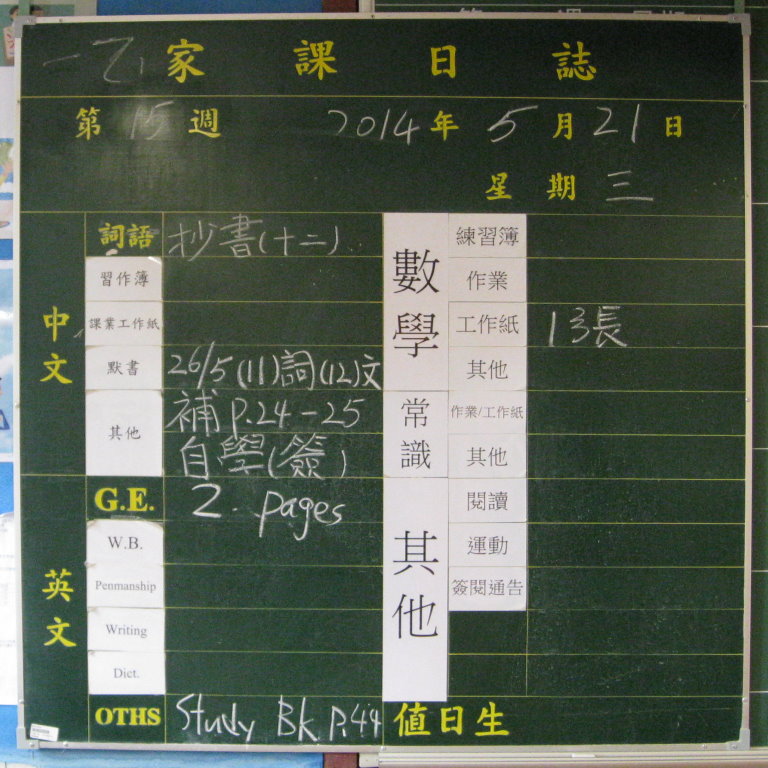 一乙 家課日誌
第 15 週 2014 年 5 月 21 日
星期 三
中文
詞語 抄書(十二)
習作簿
課業工作紙
默書 26/5 (11)詞(12)文
其他 補 P.24-25
自學(簽)
英文
G.E. 2. pages
W.B.
Penmanship
Writing
Dict.
OTHS Study Bk. P.44
數學
練習簿
作業
工作紙 13長
其他
常識
作業/工作紙
其他
其他
閱讀
運動
簽閱通告
值日生